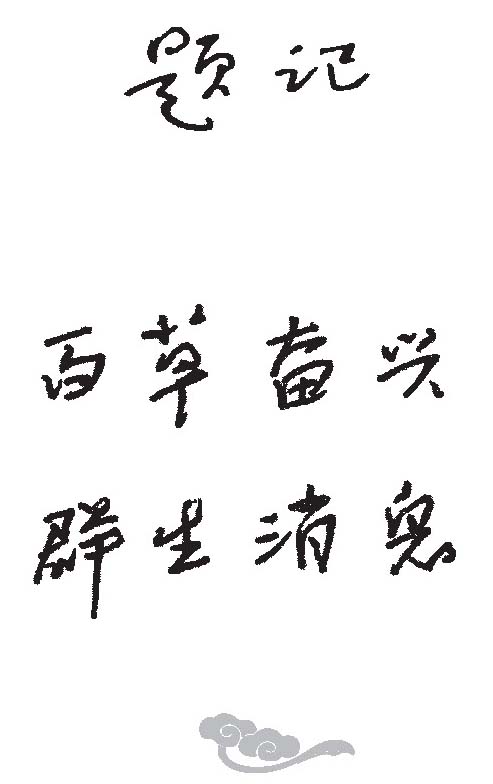 题记
百草奋兴
群生消息